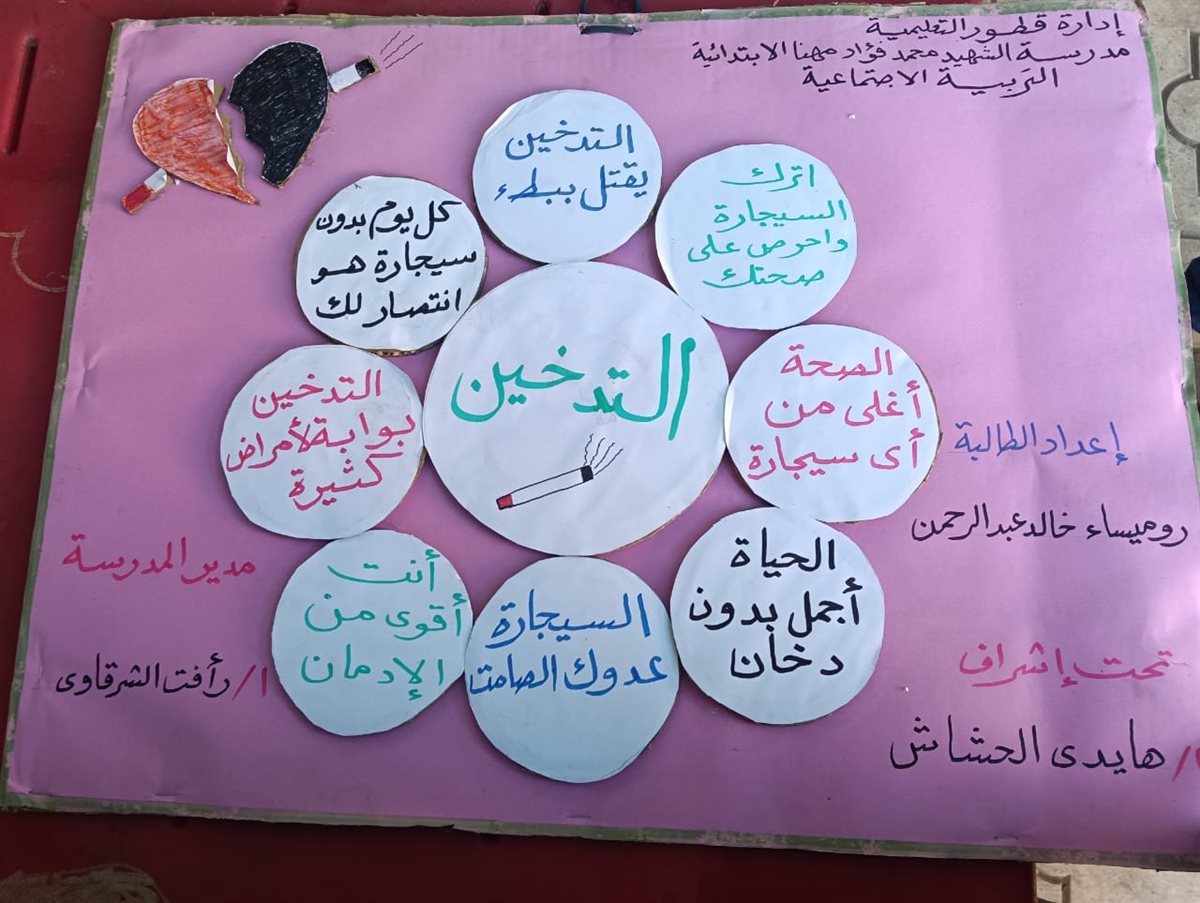 إدارة قطور التعليمية
مدرسة الشهيد محمد فؤاد مهنا الابتدائية
التربية الاجتماعية
التدخين
يقتل ببطء
اترك
السيجارة
واحرص على
صحتك
كل يوم بدون
سيجارة هو
انتصار لك
التدخين
الصحة
أغلى من
أى سيجارة
التدخين
بوابة لأمراض
كثيرة
إعداد الطالبة
روميساء خالد عبد الرحمن
الحياة
أجمل بدون
دخان
السيجارة
عدوك الصامت
أنت
أقوى من
الإدمان
مدير المدرسة
ا/ رأفت الشرقاوى
تحت إشراف
ا/ هايدى الحشاش